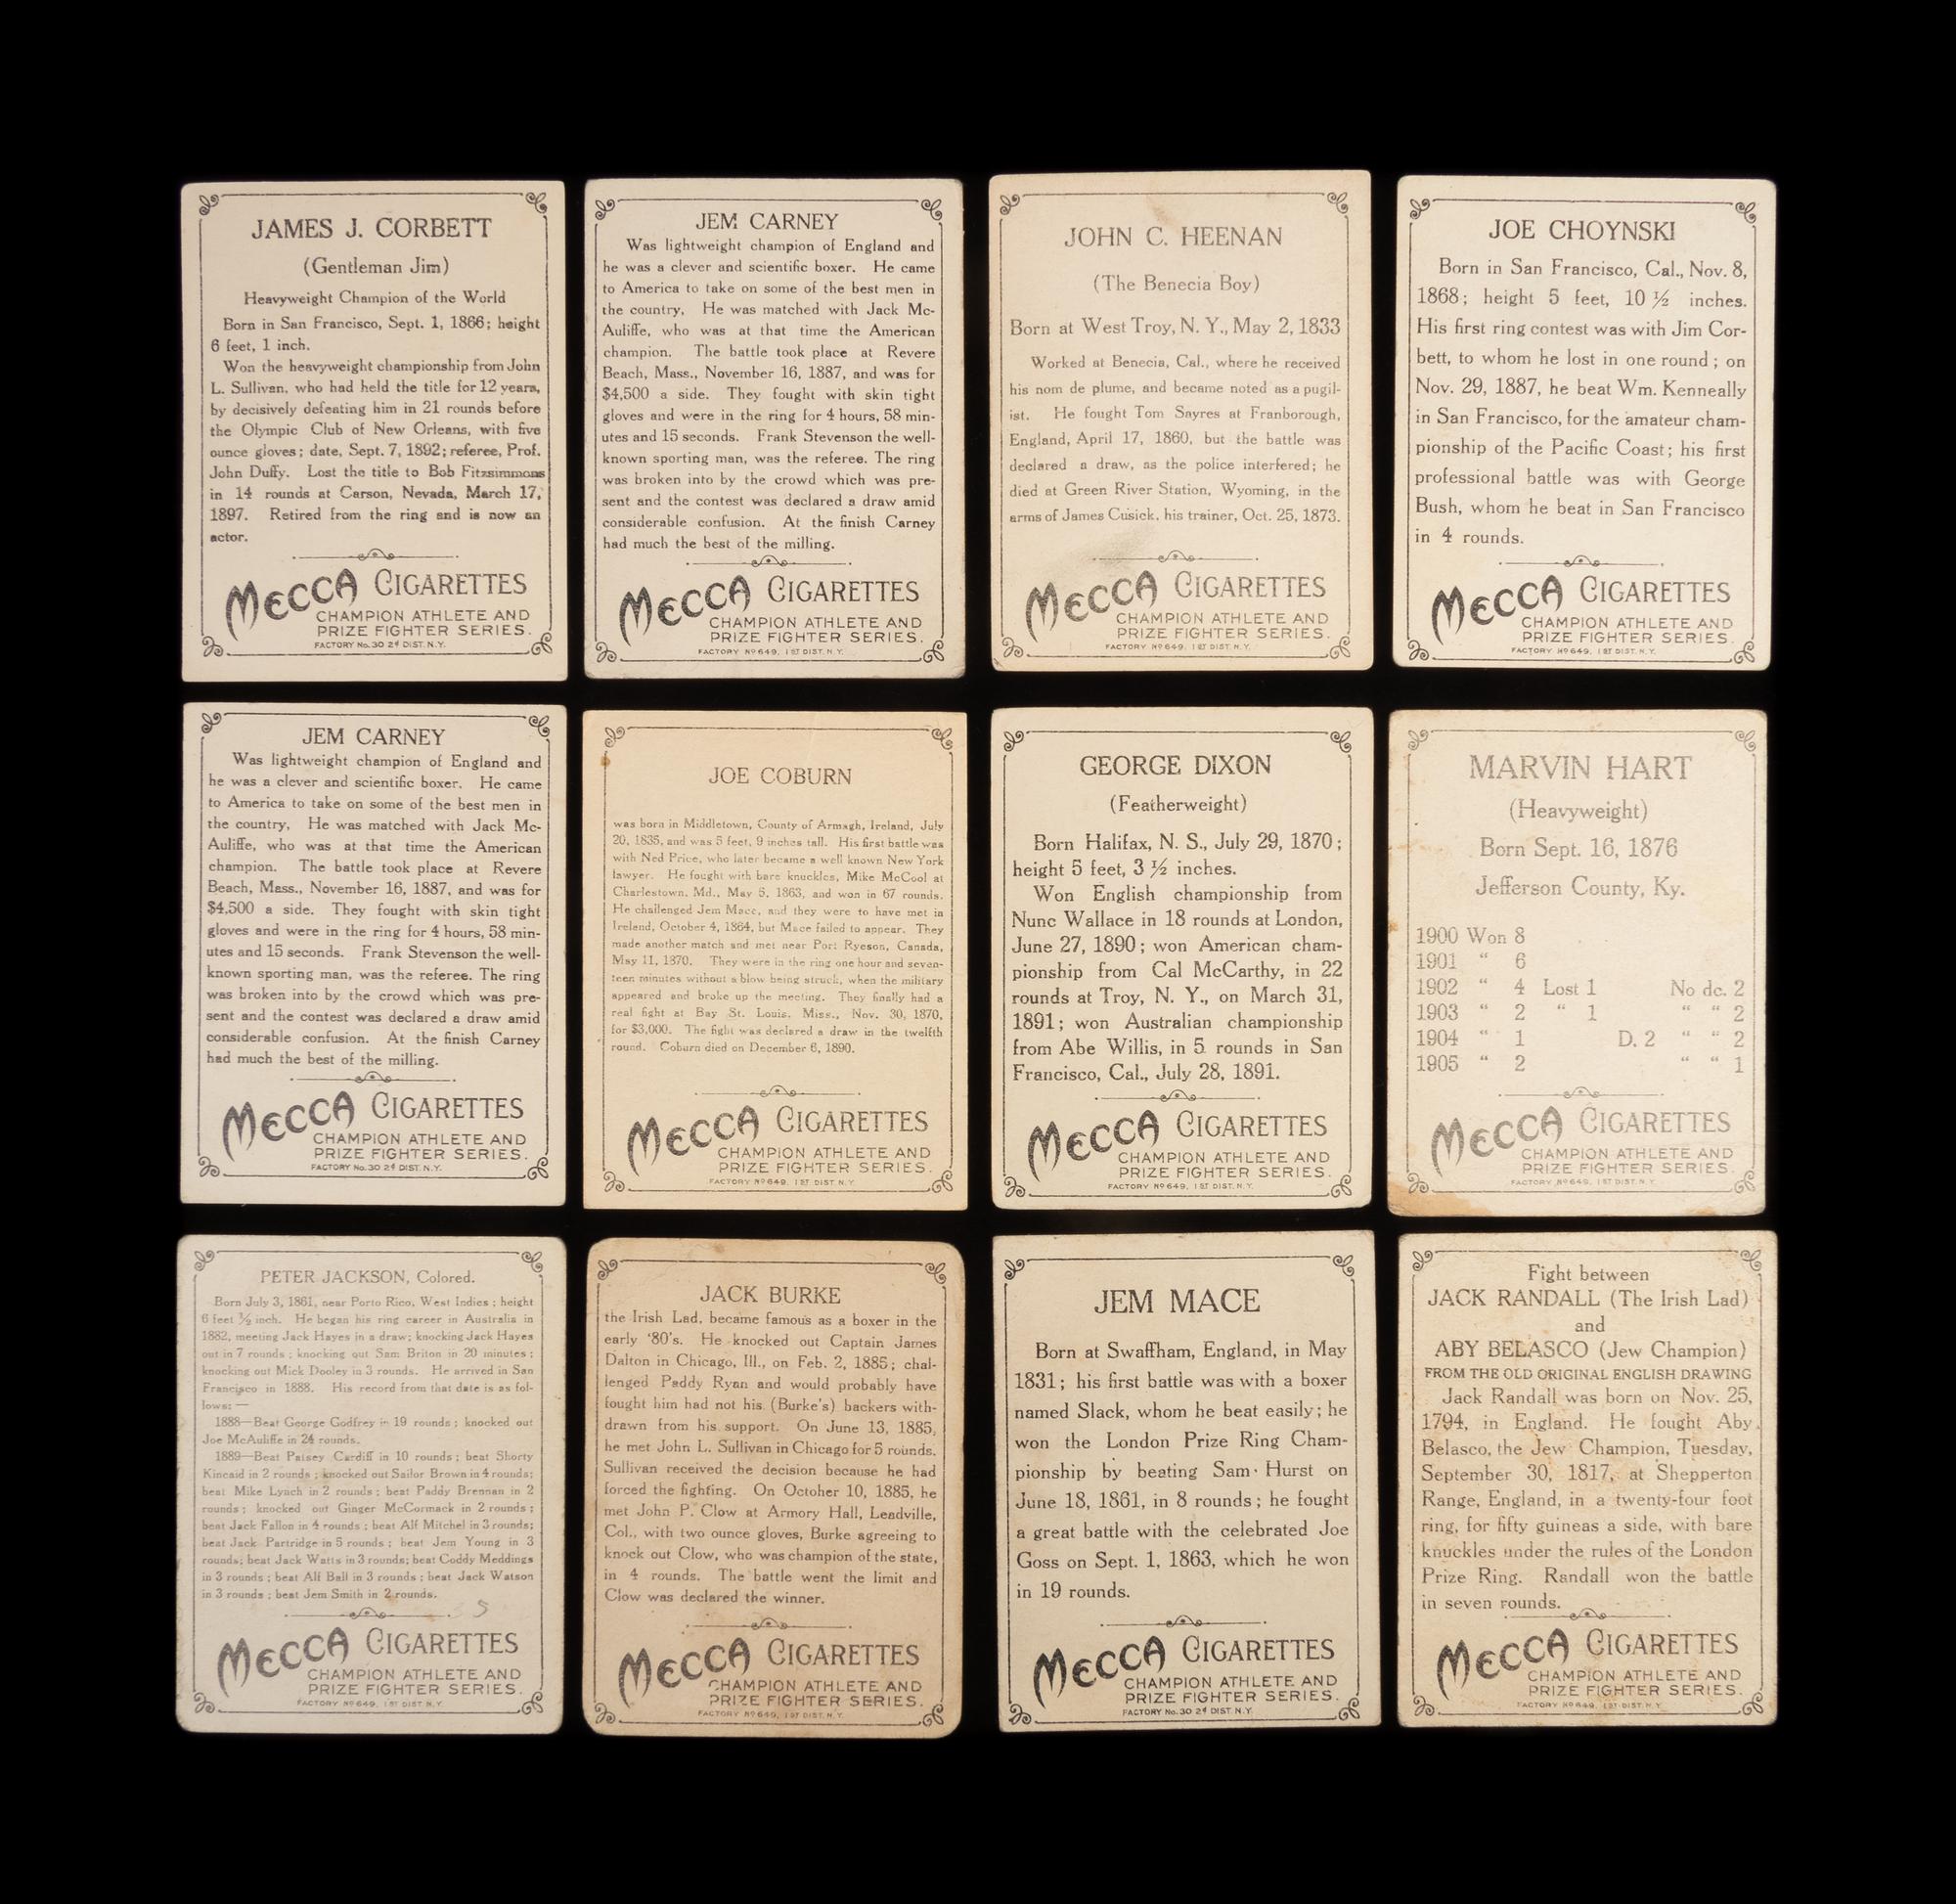 JAMES J. CORBETT
(Gentleman Jim)
Heavyweight Champion of the World
Born in San Francisco, Sept. 1, 1866; height
6 feet, 1 inch.
Won the heavyweight championship from John
L. Sullivan, who had held the title for 12 years,
by decisively defeating him in 21 rounds before
the Olympic Club of New Orleans, with five
ounce gloves; date, Sept. 7, 1892; referee, Prof.
John Duffy. Lost the title to Bob Fitzsimmons
in 14 rounds at Carson, Nevada, March 17,
1897. Retired from the ring and is now an
actor.
MECCA CIGARETTES
CHAMPION ATHLETE AND
PRIZE FIGHTER SERIES.
FACTORY No. 30 2d DIST. N.Y.
JEM CARNEY
Was lightweight champion of England and
he was a clever and scientific boxer. He came
to America to take on some of the best men in
the country. He was matched with Jack Mc-
Auliffe, who was at that time the American
champion. The battle took place at Revere
Beach, Mass., November 16, 1887, and was for
$4,500 a side. They fought with skin tight
gloves and were in the ring for 4 hours, 58 min-
utes and 15 seconds. Frank Stevenson the well-
known sporting man, was the referee. The ring
was broken into by the crowd which was pre-
sent and the contest was declared a draw amid
considerable confusion. At the finish Carney
had much the best of the milling.
MECCA CIGARETTES
CHAMPION ATHLETE AND
PRIZE FIGHTER SERIES.
FACTORY No 649, 1ST DIST. N.Y.
JOHN C. HEENAN
(The Benecia Boy)
Born at West Troy, N. Y., May 2, 1833
Worked at Benecia, Cal., where he received
his nom de plume, and became noted as a pugil-
ist. He fought Tom Sayres at Franborough,
England, April 17, 1860, but the battle was
declared a draw, as the police interfered; he
died at Green River Station, Wyoming, in the
arms of James Cusick, his trainer, Oct. 25, 1873.
MECCA CIGARETTES
CHAMPION ATHLETE AND
PRIZE FIGHTER SERIES.
FACTORY No 649, 1ST DIST. N.Y.
JOE CHOYNSKI
Born in San Francisco, Cal., Nov. 8,
1868; height 5 feet, 10 ½ inches.
His first ring contest was with Jim Cor-
bett, to whom he lost in one round; on
Nov. 29, 1887, he beat Wm. Kenneally
in San Francisco, for the amateur cham-
pionship of the Pacific Coast; his first
professional battle was with George
Bush, whom he beat in San Francisco
in 4 rounds.
MECCA CIGARETTES
CHAMPION ATHLETE AND
PRIZE FIGHTER SERIES.
FACTORY No 649, 1ST DIST. N.Y.
JEM CARNEY
Was lightweight champion of England and
he was a clever and scientific boxer. He came
to America to take on some of the best men in
the country. He was matched with Jack Mc-
Auliffe, who was at that time the American
champion. The battle took place at Revere
Beach, Mass., November 16, 1887, and was for
$4,500 a side. They fought with skin tight
gloves and were in the ring for 4 hours, 58 min-
utes and 15 seconds. Frank Stevenson the well-
known sporting man, was the referee. The ring
was broken into by the crowd which was pre-
sent and the contest was declared a draw amid
considerable confusion. At the finish Carney
had much the best of the milling.
MECCA CIGARETTES
CHAMPION ATHLETE AND
PRIZE FIGHTER SERIES.
FACTORY No. 30 2d DIST. N.Y.
JOE COBURN
was born in Middletown, County of Armagh, Ireland, July
20, 1835, and was 5 feet, 9 inches tall. His first battle was
with Ned Price, who later became a well known New York
lawyer. He fought with bare knuckles, Mike McCool at
Charlestown, Md., May 5, 1863, and won in 67 rounds.
He challenged Jem Mace, and they were to have met in
Ireland, October 4, 1864, but Mace failed to appear. They
made another match and met near Port Ryeson, Canada,
May 11, 1870. They were in the ring one hour and seven-
teen minutes without a blow being struck, when the military
appeared and broke up the meeting. They finally had a
real fight at Bay St. Louis, Miss., Nov. 30, 1870,
for $3,000. The fight was declared a draw in the twelfth
round. Coburn died on December 6, 1890.
MECCA CIGARETTES
CHAMPION ATHLETE AND
PRIZE FIGHTER SERIES.
FACTORY No 649, 1ST DIST. N.Y.
GEORGE DIXON
(Featherweight)
Born Halifax, N. S., July 29, 1870;
height 5 feet, 3 ½ inches.
Won English championship from
Nunc Wallace in 18 rounds at London,
June 27, 1890; won American cham-
pionship from Cal McCarthy, in 22
rounds at Troy, N. Y., on March 31,
1891; won Australian championship
from Abe Willis, in 5 rounds in San
Francisco, Cal., July 28, 1891.
MECCA CIGARETTES
CHAMPION ATHLETE AND
PRIZE FIGHTER SERIES.
FACTORY No 649, 1ST DIST. N.Y.
MARVIN HART
(Heavyweight)
Born Sept. 16, 1876
Jefferson County, Ky.
1900 Won 8
1901 “ 6
1902 “ 4 Lost 1 No dc. 2
1903 “ 2 “ 1 “ “ 2
1904 “ 1 D. 2 “ “ 2
1905 “ 2 “ “ 1
MECCA CIGARETTES
CHAMPION ATHLETE AND
PRIZE FIGHTER SERIES.
FACTORY No 649, 1ST DIST. N.Y.
PETER JACKSON, Colored.
Born July 3, 1861, near Porto Rico, West Indies; height
6 feet ½ inch. He began his ring career in Australia in
1882, meeting Jack Hayes in a draw; knocking Jack Hayes
out in 7 rounds; knocking out Sam Briton in 20 minutes;
knocking out Mick Dooley in 3 rounds. He arrived in San
Francisco in 1888. His record from that date is as fol-
lows:—
1888—Beat George Godfrey in 19 rounds; knocked out
Joe McAuliffe in 24 rounds.
1889—Beat Patsey Cardiff in 10 rounds; beat Shorty
Kincaid in 2 rounds; knocked out Sailor Brown in 4 rounds;
beat Mike Lynch in 2 rounds; beat Paddy Brennan in 2
rounds; knocked out Ginger McCormack in 2 rounds;
beat Jack Fallon in 4 rounds; beat Alf Mitchel in 3 rounds;
beat Jack Partridge in 5 rounds; beat Jem Young in 3
rounds; beat Jack Watts in 3 rounds; beat Coddy Meddings
in 3 rounds; beat Alf Ball in 3 rounds; beat Jack Watson
in 3 rounds; beat Jem Smith in 2 rounds.
5
MECCA CIGARETTES
CHAMPION ATHLETE AND
PRIZE FIGHTER SERIES.
FACTORY No 649, 1ST DIST. N.Y.
JACK BURKE
the Irish Lad, became famous as a boxer in the
early ‘80’s. He knocked out Captain James
Dalton in Chicago, Ill., on Feb. 2, 1885; chal-
lenged Paddy Ryan and would probably have
fought him had not his (Burke's) backers with-
drawn from his support. On June 13, 1885,
he met John L. Sullivan in Chicago for 5 rounds.
Sullivan received the decision because he had
forced the fighting. On October 10, 1885, he
met John P. Clow at Armory Hall, Leadville,
Col., with two ounce gloves, Burke agreeing to
knock out Clow, who was champion of the state,
in 4 rounds. The battle went the limit and
Clow was declared the winner.
MECCA CIGARETTES
CHAMPION ATHLETE AND
PRIZE FIGHTER SERIES.
FACTORY No 649, 1ST DIST. N.Y.
JEM MACE
Born at Swaffham, England, in May
1831; his first battle was with a boxer
named Slack, whom he beat easily; he
won the London Prize Ring Cham-
pionship by beating Sam Hurst on
June 18, 1861, in 8 rounds; he fought
a great battle with the celebrated Joe
Goss on Sept. 1, 1863, which he won
in 19 rounds.
MECCA CIGARETTES
CHAMPION ATHLETE AND
PRIZE FIGHTER SERIES.
FACTORY No. 30 2d DIST. N.Y.
Fight between
JACK RANDALL (The Irish Lad)
and
ABY BELASCO (Jew Champion)
FROM THE OLD ORIGINAL ENGLISH DRAWING
Jack Randall was born on Nov. 25,
1794, in England. He fought Aby
Belasco, the Jew Champion, Tuesday,
September 30, 1817, at Shepperton
Range, England, in a twenty-four foot
ring, for fifty guineas a side, with bare
knuckles under the rules of the London
Prize Ring. Randall won the battle
in seven rounds.
MECCA CIGARETTES
CHAMPION ATHLETE AND
PRIZE FIGHTER SERIES.
FACTORY No 649, 1ST DIST. N.Y.